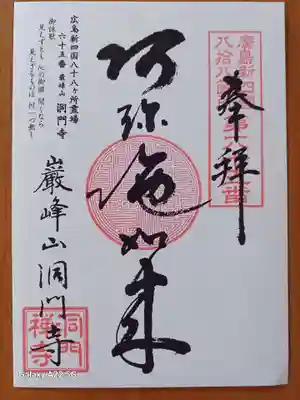 廣島新四国
八拾八ヶ所
第六十五番
奉拝
阿弥陀如来
広島新四国八十八ヶ所霊場
六十五番 巖峰山 洞門寺
御詠歌
巖峰山洞門寺
洞門
禅寺
Galaxy A22 5G